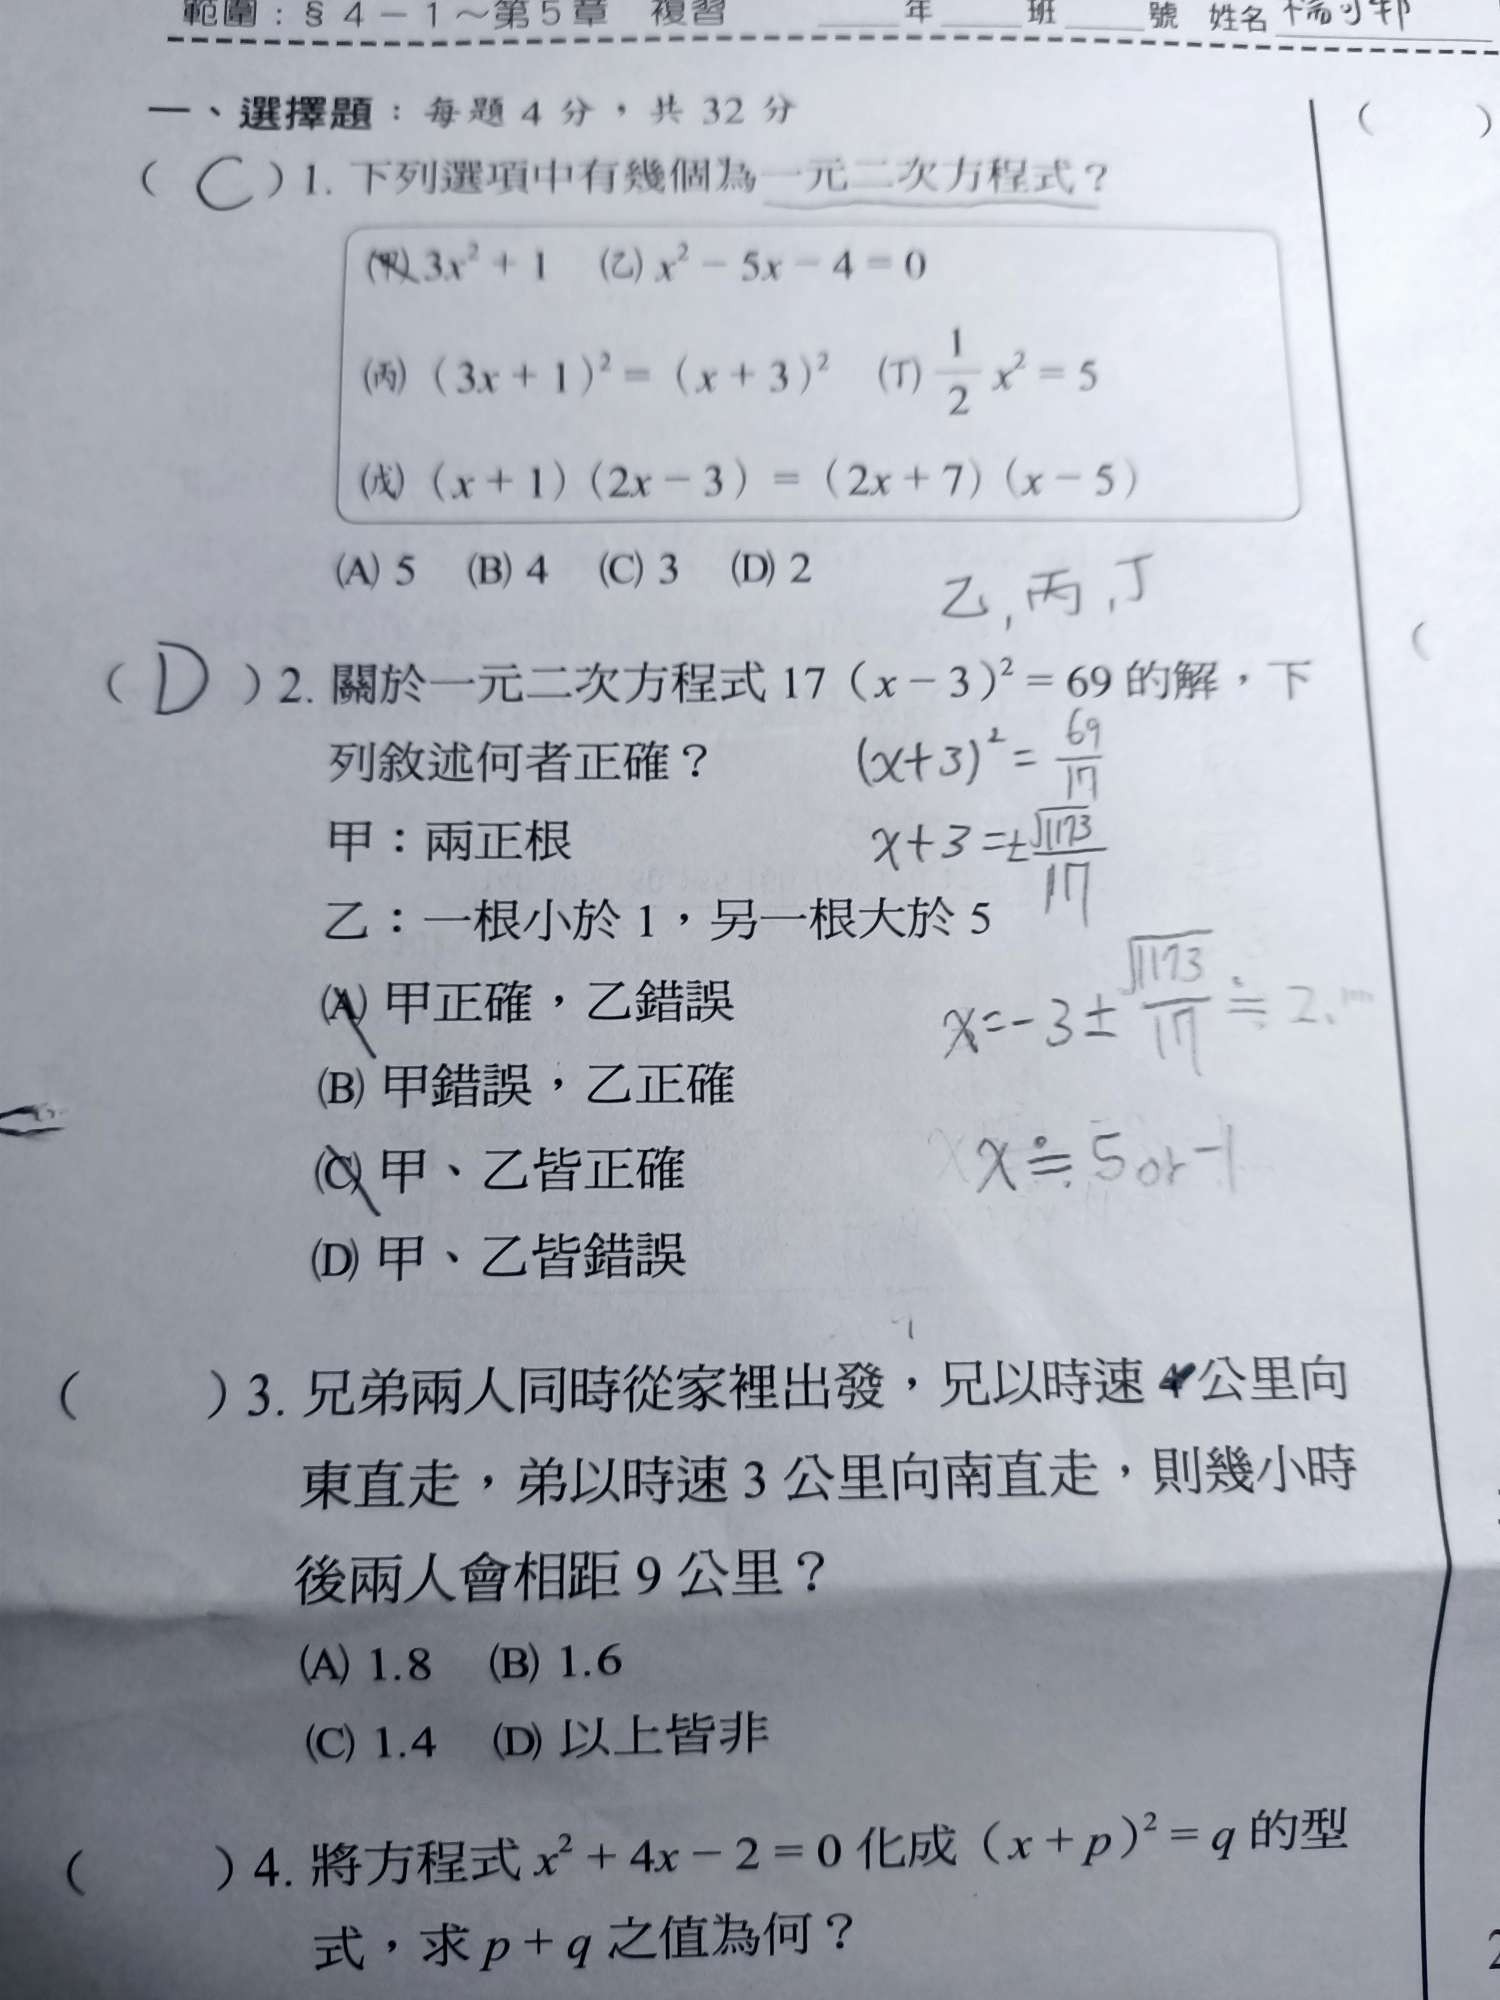 範圍：§4－1～第5章 複習 ____年____班____號 姓名
一、選擇題：每題4分，共32分
( C ) 1. 下列選項中有幾個為一元二次方程式？
(甲) 3x² + 1 (乙) x² − 5x − 4 = 0
(丙) (3x + 1)² = (x + 3)² (丁) 1/2 x² = 5
(戊) (x + 1)(2x − 3) = (2x + 7)(x − 5)
(A) 5 (B) 4 (C) 3 (D) 2
乙, 丙, 丁
( D ) 2. 關於一元二次方程式 17(x − 3)² = 69 的解，下
列敘述何者正確？
(x+3)² = 69/17
甲：兩正根
x+3 = ±√1173/17
乙：一根小於 1，另一根大於 5
(A) 甲正確，乙錯誤
x = -3 ± √1173/17 ≒ 2.
(B) 甲錯誤，乙正確
(C) 甲、乙皆正確
x ≒ 5 or -1
(D) 甲、乙皆錯誤
( ) 3. 兄弟兩人同時從家裡出發，兄以時速 4 公里向
東直走，弟以時速 3 公里向南直走，則幾小時
後兩人會相距 9 公里？
(A) 1.8 (B) 1.6
(C) 1.4 (D) 以上皆非
( ) 4. 將方程式 x² + 4x − 2 = 0 化成 (x + p)² = q 的型
式，求 p + q 之值為何？